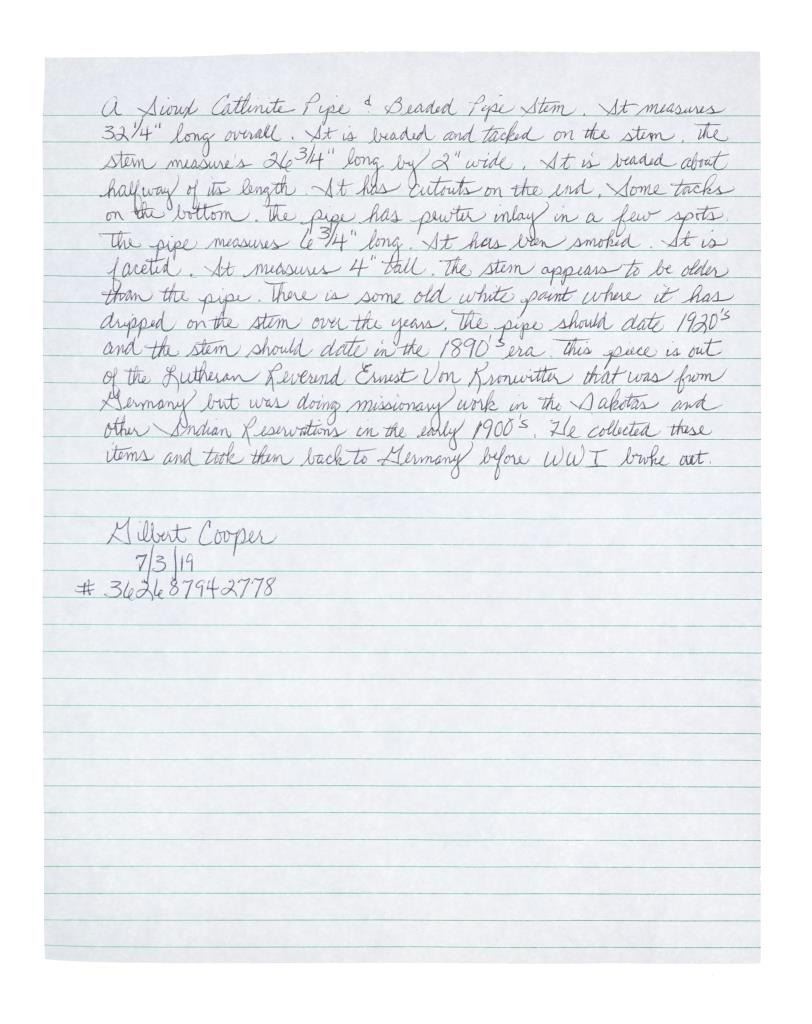 A Sioux Catlinite Pipe & Beaded Pipe Stem. It measures
32 1/4" long overall. It is beaded and tacked on the stem. The
stem measure's 26 3/4" long by 2" wide. It is beaded about
halfway of its length. It has cutouts on the end. Some tacks
on the bottom. The pipe has pewter inlay in a few spots.
The pipe measures 6 3/4" long. It has been smoked. It is
faceted. It measures 4" tall. The stem appears to be older
than the pipe. There is some old white paint where it has
dripped on the stem over the years. The pipe should date 1920's
and the stem should date in the 1890's era. This piece is out
of the Lutheran Reverend Ernest Von Kronwitter that was from
Germany but was doing missionary work in the Dakotas and
other Indian Reservations in the early 1900's. He collected these
items and took them back to Germany before WW I broke out.
Gilbert Cooper
7/3/19
# 362687942778